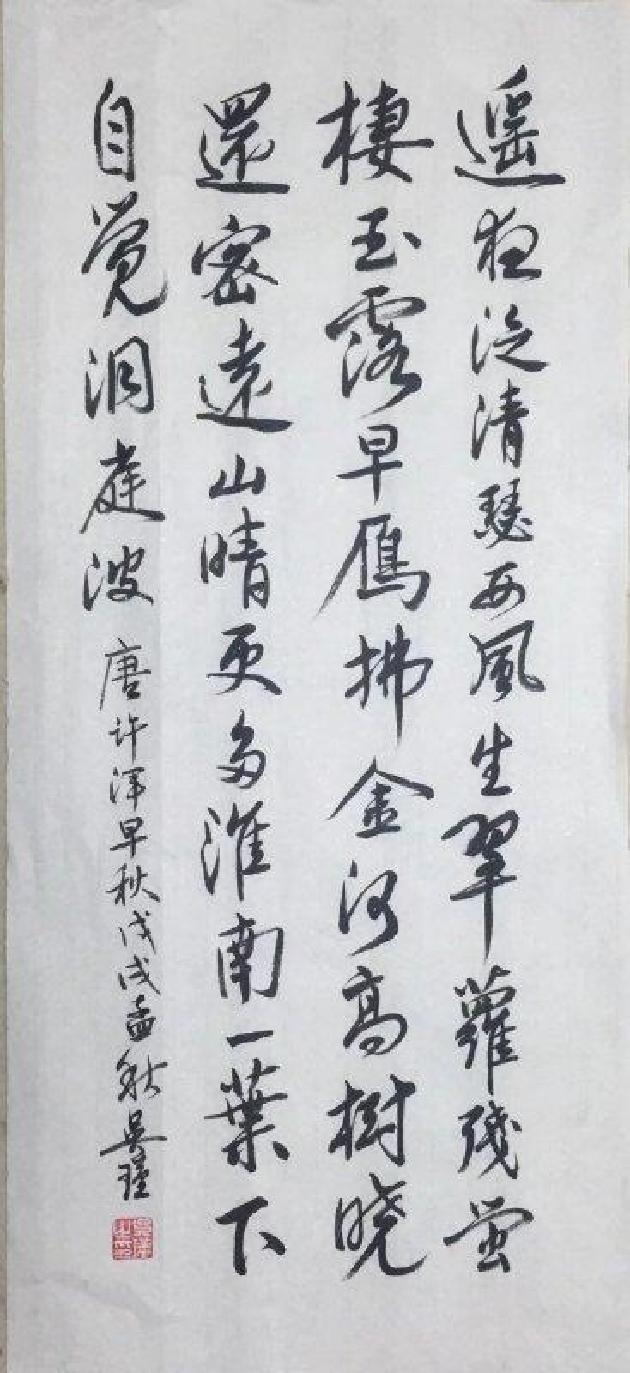 遥夜泛清瑟西风生翠蘿残萤
棲玉露早雁拂金河高樹晓
還密遠山晴更多淮南一葉下
自觉洞庭波 唐许浑早秋戊戌孟秋吴瑾